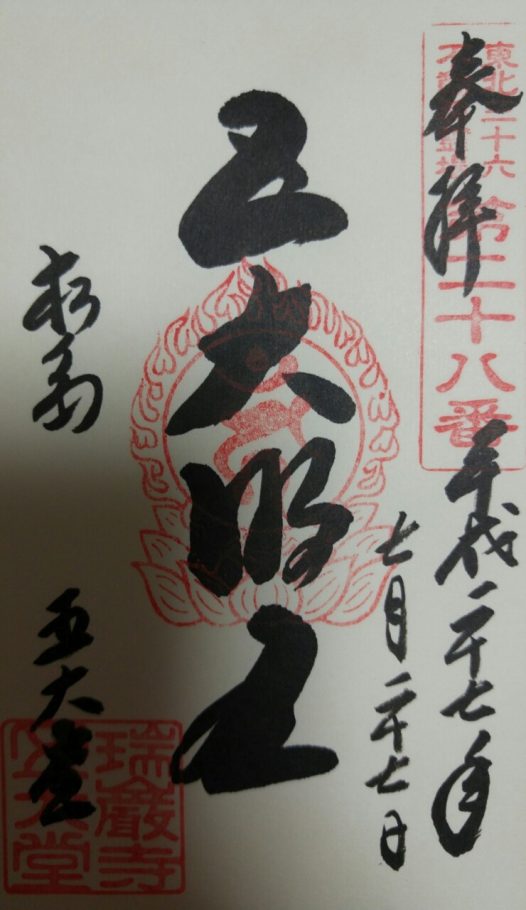 奉拝
東北三十六
不動尊霊場
第二十八番
平成二十七年
七月二十七日
五大明王
松島
五大堂
瑞巌寺
五大堂